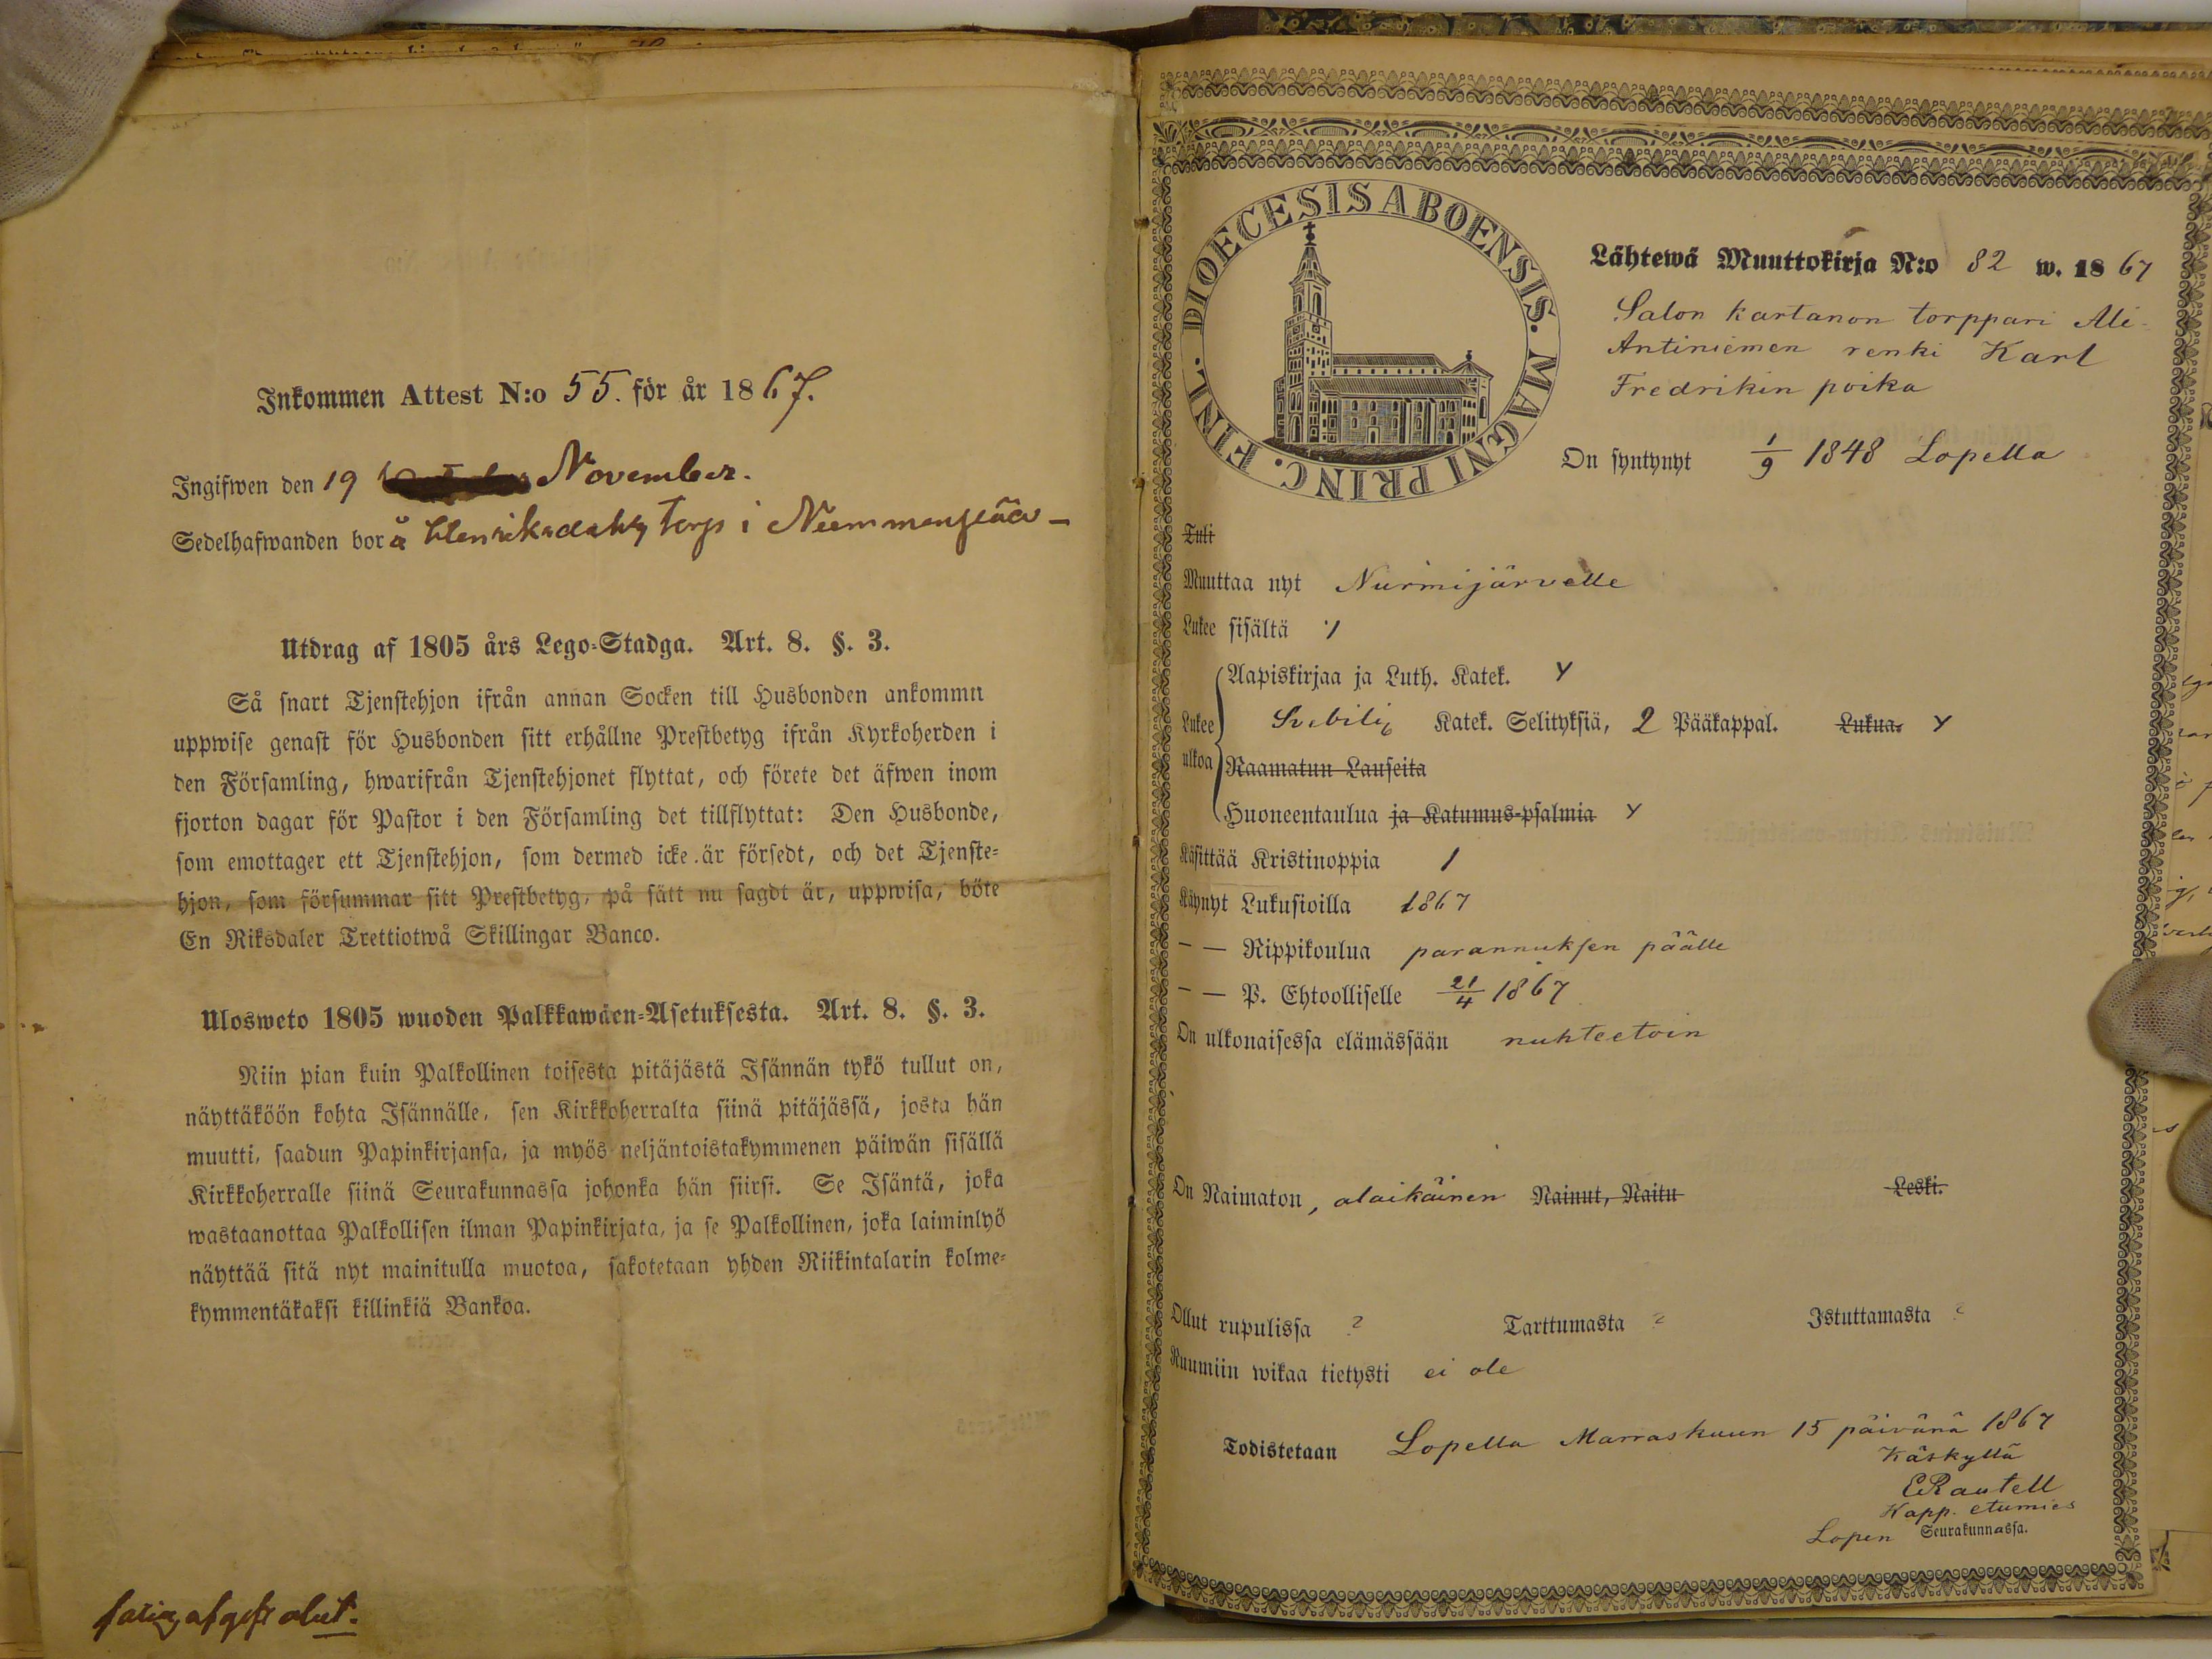 Inkommen Attest N:o 55. för år 1867.
Ingifwen den 19 November.
Sedelhafwanden bor å torp i
Utdrag af 1805 års Lego-Stadga. Art. 8. §. 3.
Så snart Tjenstehjon ifrån annan Socken till Husbonden ankommit
uppwise genast för Husbonden sitt erhållne Prestbetyg ifrån Kyrkoherden i
den Församling, hwarifrån Tjenstehjonet flyttat, och förete det äfwen inom
fjorton dagar för Pastor i den Församling det tillflyttat: Den Husbonde,
som emottager ett Tjenstehjon, som dermed icke är försedt, och det Tjenste-
hjon, som försummar sitt Prestbetyg, på sätt nu sagdt är, uppwisa, böte
En Riksdaler Trettiotwå Skillingar Banco.
Ulosweto 1805 wuoden Palkkawäen-Asetuksesta. Art. 8. §. 3.
Niin pian kuin Palkollinen toisesta pitäjästä Isännän tykö tullut on,
näyttäköön kohta Isännälle, sen Kirkkoherralta siinä pitäjässä, josta hän
muutti, saadun Papinkirjansa, ja myös neljäntoistakymmenen päiwän sisällä
Kirkkoherralle siinä Seurakunnassa johonka hän siirsi. Se Isäntä, joka
wastaanottaa Palkollisen ilman Papinkirjata, ja se Palkollinen, joka laiminlyö
näyttää sitä nyt mainitulla muotoa, sakotetaan yhden Riikintalarin kolme-
kymmentäkaksi killinkiä Bankoa.
DIOECESIS ABOENSIS. MAGNI PRINC. FINL.
Lähtewä Muuttokirja N:o 82 w. 1867
Salon kartanon torppari Ali-
Antiniemen renki Karl
Fredrikin poika
On syntynyt 1/9 1848 Lopella
Tuli
Muuttaa nyt Nurmijärvelle
Lukee sisältä
Aapiskirjaa ja Luth. Katek. Y
Lukee ulkoa Svebilig Katek. Selityksiä, 2 Pääkappal. Lukua. Y
Raamatun Lauseita
Huoneentaulua ja Katumus-psalmia Y
Käsittää Kristinoppia 1
Käynyt Lukusioilla 1867
— — Rippikoulua parannuksen päälle
— — P. Ehtoolliselle 21/4 1867
On ulkonaisessa elämässään nuhteetoin
On Naimaton, alaikäinen Nainut, Naitu Leski.
Ollut rupulissa ? Tarttumasta ? Istuttamasta ?
Ruumiin wikaa tietysti ei ole
Todistetaan Lopella Marraskuun 15 päivänä 1867
Käskyllä
E Rautell
Kapp. etumies
Lopen Seurakunnassa.